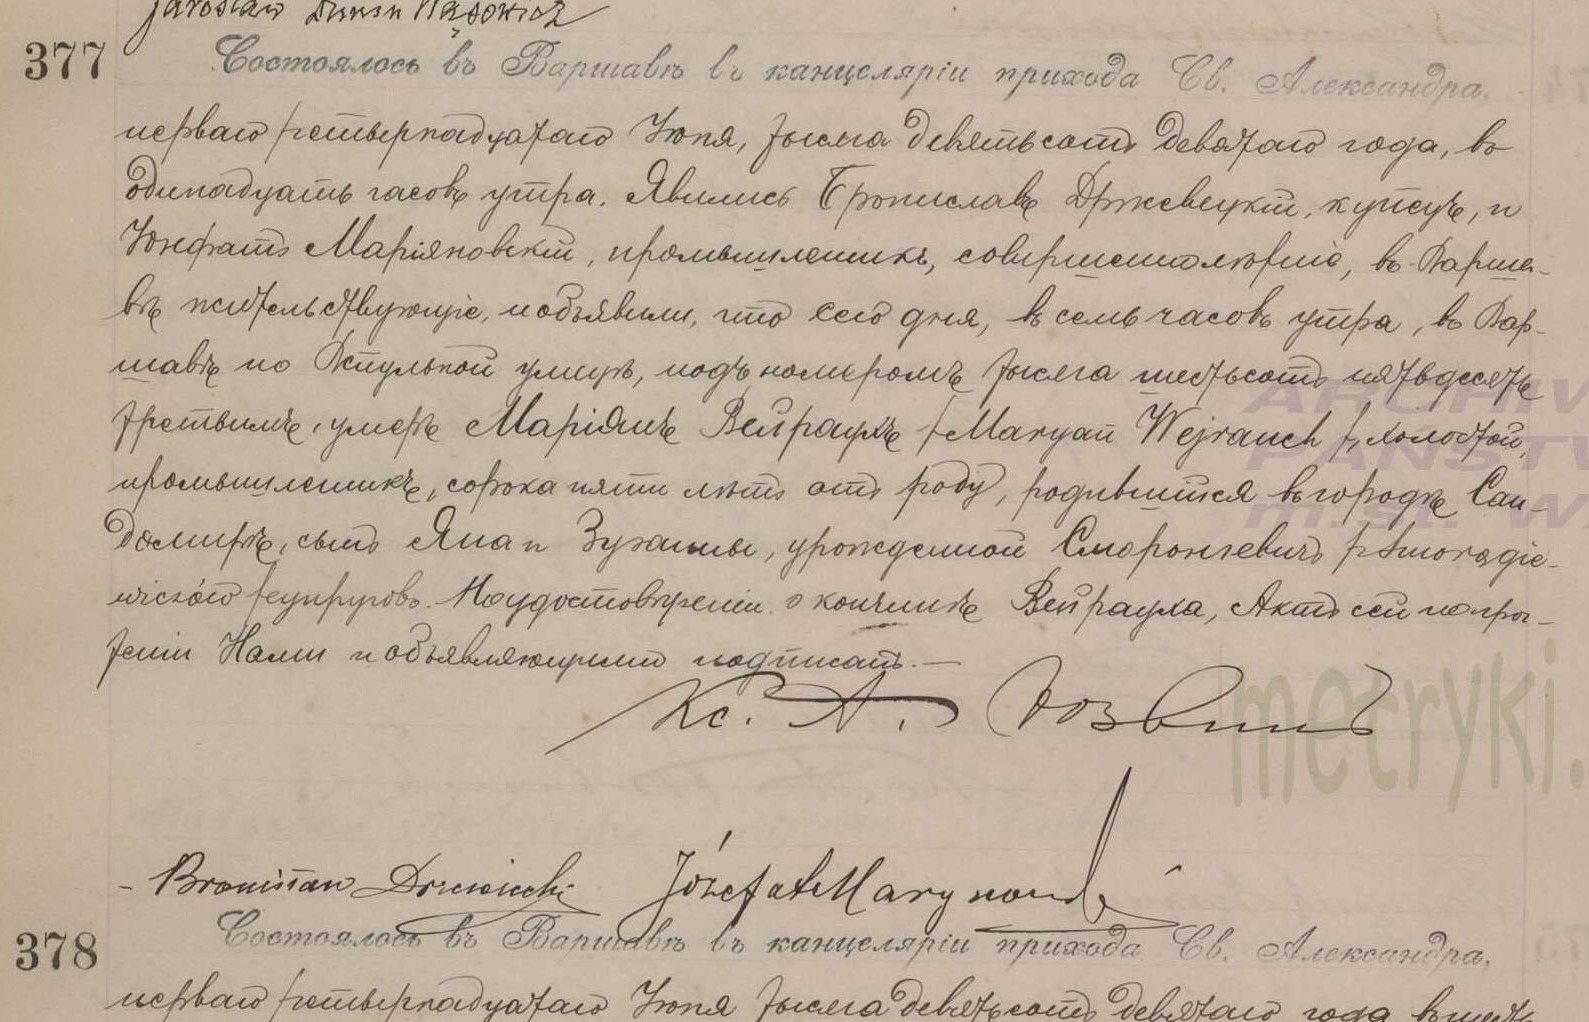 Jarosław Dunin Wąsowicz
377
Состоялось въ Варшавѣ въ канцеляріи прихода Св. Александра,
перваго /четырнадцатаго/ Іюня, тысяча девятьсотъ девятаго года, въ
одинадцать часовъ утра. Явились Брониславъ Држевецкій, купецъ, и
Іозафатъ Маріяновскій, промышленникъ, совершеннолѣтніе, въ Варша-
вѣ жительствующіе, и объявили, что сего дня, въ семь часовъ утра, въ Вар-
шавѣ по улицѣ, подъ номеромъ тысяча шестьсотъ пятьдесятъ
третьимъ, умеръ Маріянъ Вейраухъ /Maryan Wejrauch/, холостой,
промышленникъ, сорока пяти лѣтъ отъ роду, родившійся въ городѣ Сан-
домирѣ, сынъ Яна и Зузанны, урожденной Сморонгевичъ /Smorągie-
wiczów/ супруговъ. По удостовѣреніи о кончинѣ Вейрауха, Актъ сей по проч-
теніи Нами и объявляющими подписанъ. —
Кс. А.
Bronisław Drzewiecki Józefat Maryanowski
378
Состоялось въ Варшавѣ въ канцеляріи прихода Св. Александра,
перваго /четырнадцатаго Іюня тысяча девятьсотъ девятаго года въ
ARCHIW
PAŃSTW
m.st. W
metryki.